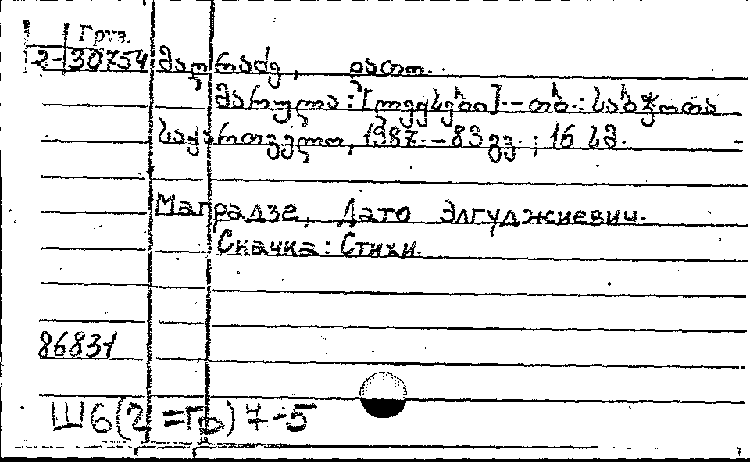 Груз.
2-30754 მაღრაძე, დათო.
მარულა : [ლექსები] - თბ. : საბჭოთა
საქართველო, 1987. - 83 გვ. ; 16 სმ.
Маградзе, Дато Элгуджиевич.
Скачка : Стихи.
86831
Ш6(2=Гр)7-5